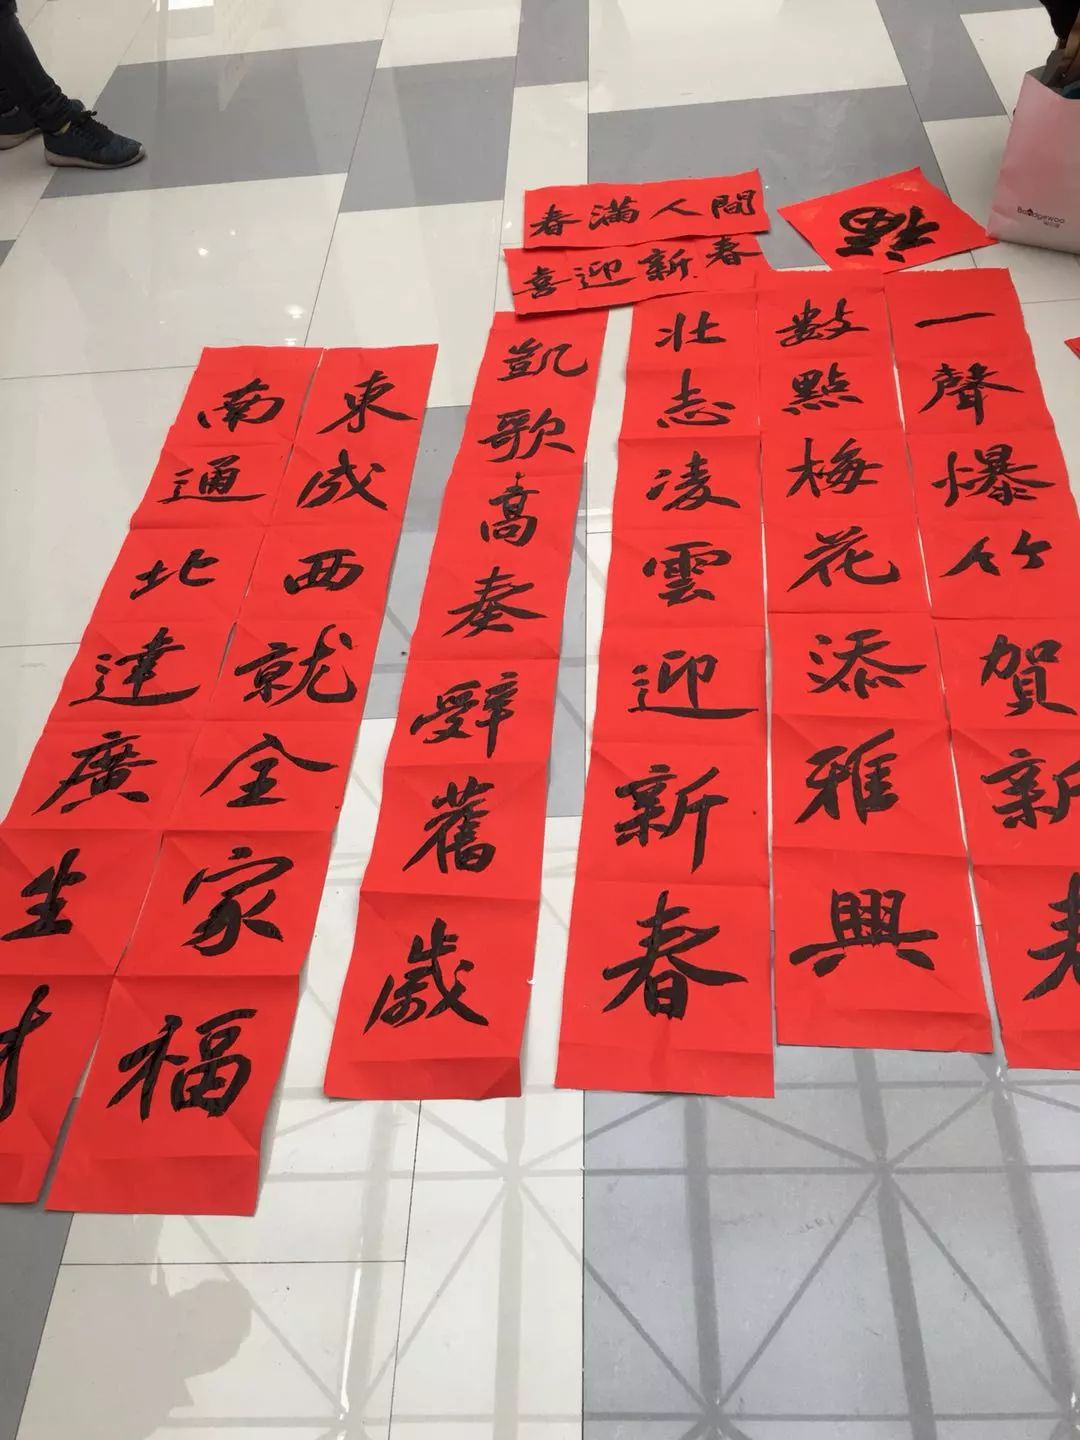 春滿人間
喜迎新春
福
一聲爆竹賀新
數點梅花添雅興
壯志凌雲迎新春
凱歌高奏辭舊歲
東成西就全家福
南通北達廣生